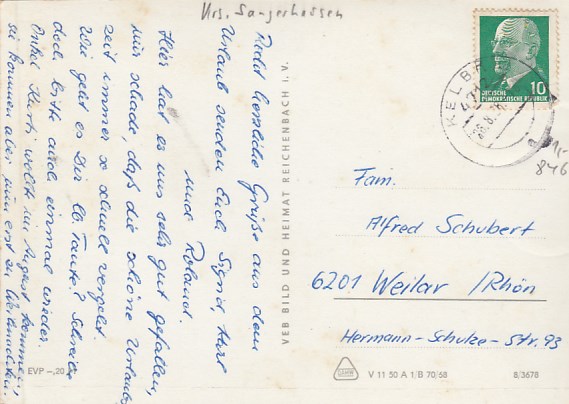 Krs. Sangerhausen
Recht herzliche Grüße aus dem
Urlaub senden Euch Sigrid, Karl
und Roland.
Hier hat es uns sehr gut gefallen,
nur schade, daß die schöne Urlaubs
zeit immer so schnell vergeht.
Wie geht es Dir lb. Tante? Schreibe
doch bitte auch einmal wieder.
Onkel Kurt wollt im August kommen,
sie kommen aber nun erst zu Weihnachten.
EVP -,20
VEB BILD UND HEIMAT REICHENBACH i. V.
10
DEUTSCHE
DEMOKRATISCHE REPUBLIK
KELBR
1,-
846
Fam.
Alfred Schubert
6201 Weilar /Rhön
Hermann-Schulze-Str. 93
V 11 50 A 1/B 70/68
8/3678